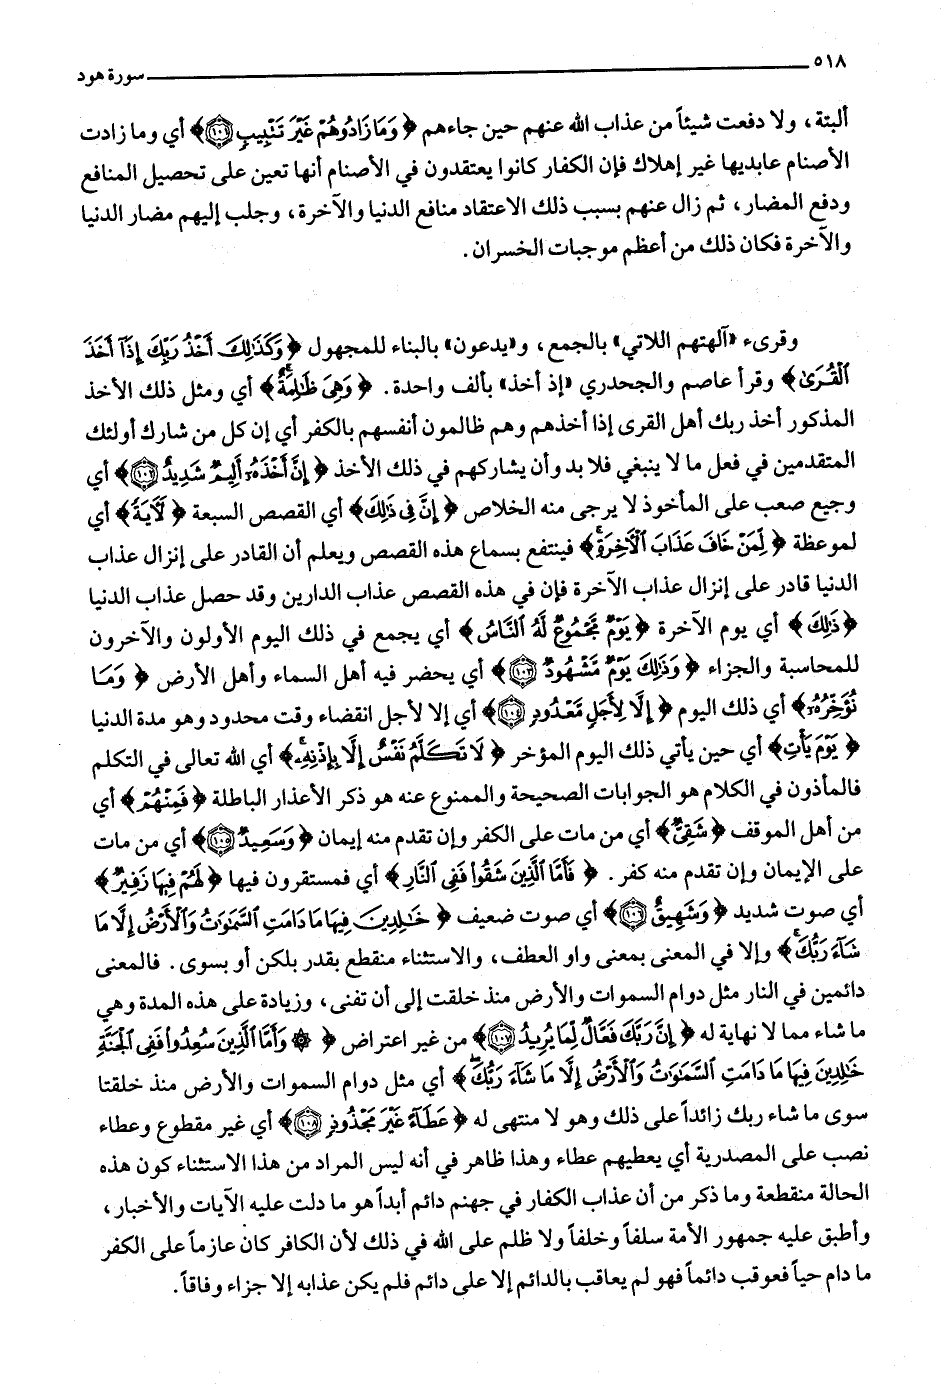 ٥١٨ سورة هود
ألبتة، ولا دفعت شيئاً من عذاب الله عنهم حين جاءهم ﴿ وَمَا زَادُوهُمْ غَيْرَ تَتْبِيبٍ ١٠١﴾ أي وما زادت
الأصنام عابديها غير إهلاك فإن الكفار كانوا يعتقدون في الأصنام أنها تعين على تحصيل المنافع
ودفع المضار، ثم زال عنهم بسبب ذلك الاعتقاد منافع الدنيا والآخرة، وجلب إليهم مضار الدنيا
والآخرة فكان ذلك من أعظم موجبات الخسران.
وقرىء «آلهتهم اللاتي» بالجمع، و«يدعون» بالبناء للمجهول ﴿ وَكَذَٰلِكَ أَخْذُ رَبِّكَ إِذَآ أَخَذَ
ٱلْقُرَىٰ﴾ وقرأ عاصم والجحدري «إذ أخذ» بألف واحدة. ﴿ وَهِيَ ظَٰلِمَةٌ﴾ أي ومثل ذلك الأخذ
المذكور أخذ ربك أهل القرى إذا أخذهم وهم ظالمون أنفسهم بالكفر أي إن كل من شارك أولئك
المتقدمين في فعل ما لا ينبغي فلا بد وأن يشاركهم في ذلك الأخذ ﴿ إِنَّ أَخْذَهُۥٓ أَلِيمٌ شَدِيدٌ ١٠٢﴾ أي
وجيع صعب على المأخوذ لا يرجى منه الخلاص ﴿ إِنَّ فِي ذَٰلِكَ﴾ أي القصص السبعة ﴿ لَآيَةً﴾ أي
لموعظة ﴿ لِّمَنْ خَافَ عَذَابَ ٱلْآخِرَةِ﴾ فينتفع بسماع هذه القصص ويعلم أن القادر على إنزال عذاب
الدنيا قادر على إنزال عذاب الآخرة فإن في هذه القصص عذاب الدارين وقد حصل عذاب الدنيا
﴿ذَٰلِكَ﴾ أي يوم الآخرة ﴿يَوْمٌ مَّجْمُوعٌ لَّهُ ٱلنَّاسُ﴾ أي يجمع في ذلك اليوم الأولون والآخرون
للمحاسبة والجزاء ﴿ وَذَٰلِكَ يَوْمٌ مَّشْهُودٌ ١٠٣﴾ أي يحضر فيه أهل السماء وأهل الأرض ﴿ وَمَا
نُؤَخِّرُهُۥٓ﴾ أي ذلك اليوم ﴿ إِلَّا لِأَجَلٍ مَّعْدُودٍ ١٠٤﴾ أي إلا لأجل انقضاء وقت محدود وهو مدة الدنيا
﴿ يَوْمَ يَأْتِ﴾ أي حين يأتي ذلك اليوم المؤخر ﴿ لَا تَكَلَّمُ نَفْسٌ إِلَّا بِإِذْنِهِۦ﴾ أي الله تعالى في التكلم
فالمأذون في الكلام هو الجوابات الصحيحة والممنوع عنه هو ذكر الأعذار الباطلة ﴿فَمِنْهُمْ﴾ أي
من أهل الموقف ﴿شَقِيٌّ﴾ أي من مات على الكفر وإن تقدم منه إيمان ﴿ وَسَعِيدٌ ١٠٥﴾ أي من مات
على الإيمان وإن تقدم منه كفر. ﴿ فَأَمَّا ٱلَّذِينَ شَقُوا۟ فَفِي ٱلنَّارِ﴾ أي فمستقرون فيها ﴿لَهُمْ فِيهَا زَفِيرٌ﴾
أي صوت شديد ﴿ وَشَهِيقٌ ١٠٦﴾ أي صوت ضعيف ﴿ خَٰلِدِينَ فِيهَا مَا دَامَتِ ٱلسَّمَٰوَٰتُ وَٱلْأَرْضُ إِلَّا مَا
شَآءَ رَبُّكَ﴾ وإلا في المعنى بمعنى واو العطف، والاستثناء منقطع بقدر بلكن أو بسوى. فالمعنى
دائمين في النار مثل دوام السموات والأرض منذ خلقت إلى أن تفنى، وزيادة على هذه المدة وهي
ما شاء مما لا نهاية له ﴿ إِنَّ رَبَّكَ فَعَّالٌ لِّمَا يُرِيدُ ١٠٧﴾ من غير اعتراض ﴿ ۞ وَأَمَّا ٱلَّذِينَ سُعِدُوا۟ فَفِي ٱلْجَنَّةِ
خَٰلِدِينَ فِيهَا مَا دَامَتِ ٱلسَّمَٰوَٰتُ وَٱلْأَرْضُ إِلَّا مَا شَآءَ رَبُّكَ﴾ أي مثل دوام السموات والأرض منذ خلقتا
سوى ما شاء ربك زائداً على ذلك وهو لا منتهى له ﴿ عَطَآءً غَيْرَ مَجْذُوذٍ ١٠٨﴾ أي غير مقطوع وعطاء
نصب على المصدرية أي يعطيهم عطاء وهذا ظاهر في أنه ليس المراد من هذا الاستثناء كون هذه
الحالة منقطعة وما ذكر من أن عذاب الكفار في جهنم دائم أبداً هو ما دلت عليه الآيات والأخبار،
وأطبق عليه جمهور الأمة سلفاً وخلفاً ولا ظلم على الله في ذلك لأن الكافر كان عازماً على الكفر
ما دام حياً فعوقب دائماً فهو لم يعاقب بالدائم إلا على دائم فلم يكن عذابه إلا جزاء وفاقاً.